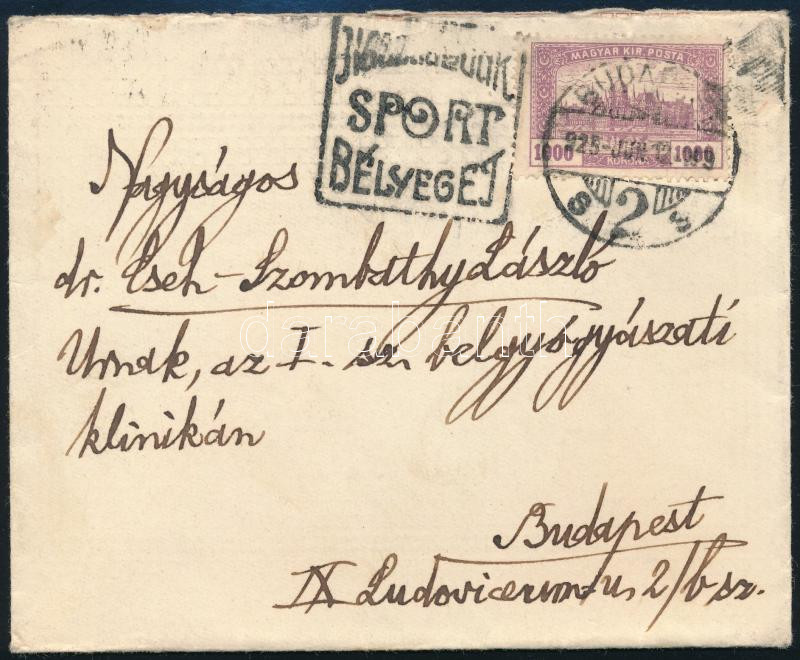 SPORT
BÉLYEGET
MAGYAR KIR. POSTA
1000 KORONA 1000
925
2
S S
Nagyságos
dr. Cseh-Szombathy László
Urnak, az I. sz. belgyógyászati
klinikán
Budapest
IX Ludoviceum-u. 2/b sz.
darabanth